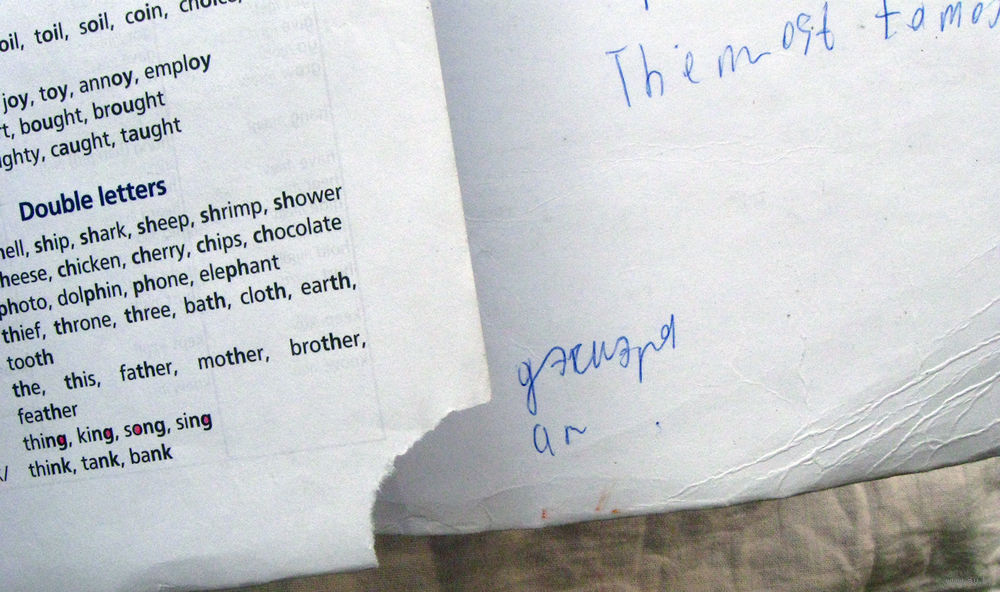 oil, toil, soil, coin, choice,
joy, toy, annoy, employ
bought, brought
ghty, caught, taught
Double letters
hell, ship, shark, sheep, shrimp, shower
heese, chicken, cherry, chips, chocolate
photo, dolphin, phone, elephant
thief, throne, three, bath, cloth, earth,
tooth
the, this, father, mother, brother,
feather
thing, king, song, sing
think, tank, bank
The most
an